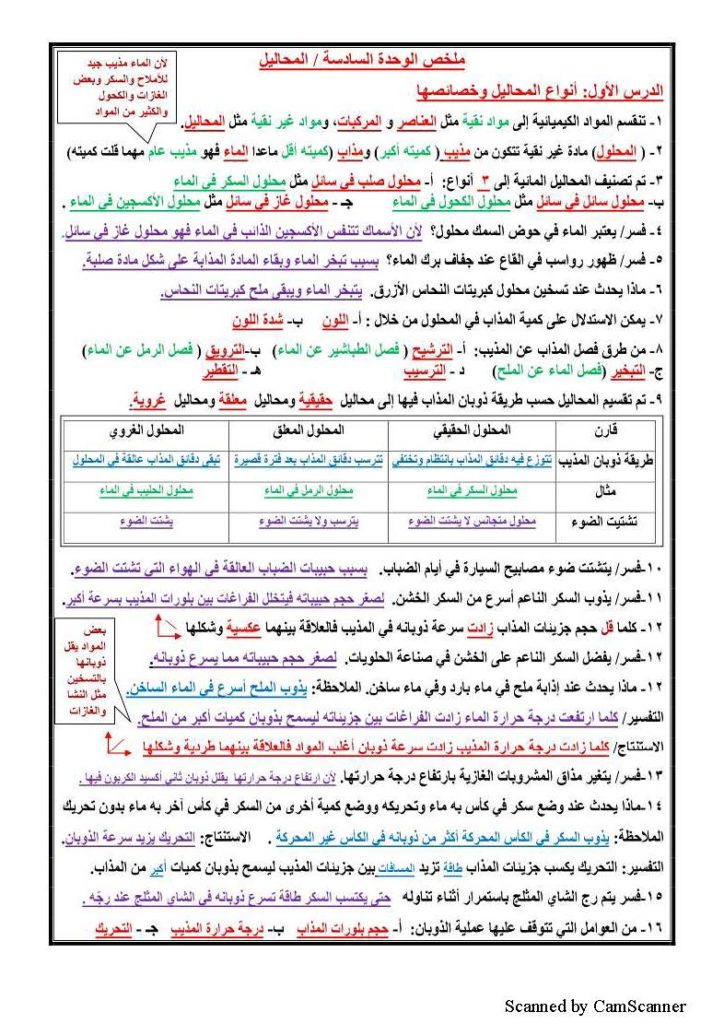 ملخص الوحدة السادسة / المحاليل
لأن الماء مذيب جيد
للأملاح والسكر وبعض
الغازات والكحول
والكثير من المواد
الدرس الأول: أنواع المحاليل وخصائصها
١- تنقسم المواد الكيميائية إلى مواد نقية مثل العناصر و المركبات، ومواد غير نقية مثل المحاليل.
٢- ( المحلول) مادة غير نقية تتكون من مذيب ( كميته أكبر) ومذاب (كميته أقل ماعدا الماء فهو مذيب عام مهما قلت كميته)
٣- تم تصنيف المحاليل المائية إلى ٣ أنواع: أ- محلول صلب في سائل مثل محلول السكر في الماء
ب- محلول سائل في سائل مثل محلول الكحول في الماء جـ - محلول غاز في سائل مثل محلول الأكسجين في الماء .
٤- فسر/ يعتبر الماء في حوض السمك محلول؟ لأن الأسماك تتنفس الأكسجين الذائب في الماء فهو محلول غاز في سائل.
٥- فسر/ ظهور رواسب في القاع عند جفاف برك الماء؟ بسبب تبخر الماء وبقاء المادة المذابة على شكل مادة صلبة.
٦- ماذا يحدث عند تسخين محلول كبريتات النحاس الأزرق. يتبخر الماء ويبقى ملح كبريتات النحاس.
٧- يمكن الاستدلال على كمية المذاب في المحلول من خلال : أ- اللون ب- شدة اللون
٨- من طرق فصل المذاب عن المذيب: أ- الترشيح ( فصل الطباشير عن الماء) ب-الترويق ( فصل الرمل عن الماء)
ج- التبخير (فصل الماء عن الملح) د - الترسيب هـ - التقطير
٩- تم تقسيم المحاليل حسب طريقة ذوبان المذاب فيها إلى محاليل حقيقية ومحاليل معلقة ومحاليل غروية.
قارن المحلول الحقيقي المحلول المعلق المحلول الغروي
طريقة ذوبان المذيب تتوزع فيه دقائق المذاب بانتظام وتختفي تترسب دقائق المذاب بعد فترة قصيرة تبقى دقائق المذاب عالقة في المحلول
مثال محلول السكر في الماء محلول الرمل في الماء محلول الحليب في الماء
تشتيت الضوء محلول متجانس لا يشتت الضوء يترسب ولا يشتت الضوء يشتت الضوء
١٠-فسر/ يتشتت ضوء مصابيح السيارة في أيام الضباب. بسبب حبيبات الضباب العالقة في الهواء التي تشتت الضوء.
١١-فسر/ يذوب السكر الناعم أسرع من السكر الخشن. لصغر حجم حبيباته فيتخلل الفراغات بين بلورات المذيب بسرعة أكبر.
١٢- كلما قل حجم جزيئات المذاب زادت سرعة ذوبانه في المذيب فالعلاقة بينهما عكسية وشكلها
بعض
المواد يقل
ذوبانها
بالتسخين
مثل النشا
والغازات
١٢-فسر/ يفضل السكر الناعم على الخشن في صناعة الحلويات. لصغر حجم حبيباته مما يسرع ذوبانه.
١٢- ماذا يحدث عند إذابة ملح في ماء بارد وفي ماء ساخن. الملاحظة: يذوب الملح أسرع في الماء الساخن.
التفسير/ كلما ارتفعت درجة حرارة الماء زادت الفراغات بين جزيئاته ليسمح بذوبان كميات أكبر من الملح.
الاستنتاج/ كلما زادت درجة حرارة المذيب زادت سرعة ذوبان أغلب المواد فالعلاقة بينهما طردية وشكلها
١٣-فسر/ يتغير مذاق المشروبات الغازية بارتفاع درجة حرارتها. لأن ارتفاع درجة حرارتها يقلل ذوبان ثاني أكسيد الكربون فيها .
١٤-ماذا يحدث عند وضع سكر في كأس به ماء وتحريكه ووضع كمية أخرى من السكر في كأس آخر به ماء بدون تحريك
الملاحظة: يذوب السكر في الكأس المحركة أكثر من ذوبانه في الكأس غير المحركة . الاستنتاج: التحريك يزيد سرعة الذوبان.
التفسير: التحريك يكسب جزيئات المذاب طاقة تزيد المسافات بين جزيئات المذيب ليسمح بذوبان كميات أكبر من المذاب.
١٥-فسر يتم رج الشاي المثلج باستمرار أثناء تناوله حتى يكتسب السكر طاقة تسرع ذوبانه في الشاي المثلج عند رجّه .
١٦- من العوامل التي تتوقف عليها عملية الذوبان: أ- حجم بلورات المذاب ب- درجة حرارة المذيب جـ - التحريك
Scanned by CamScanner